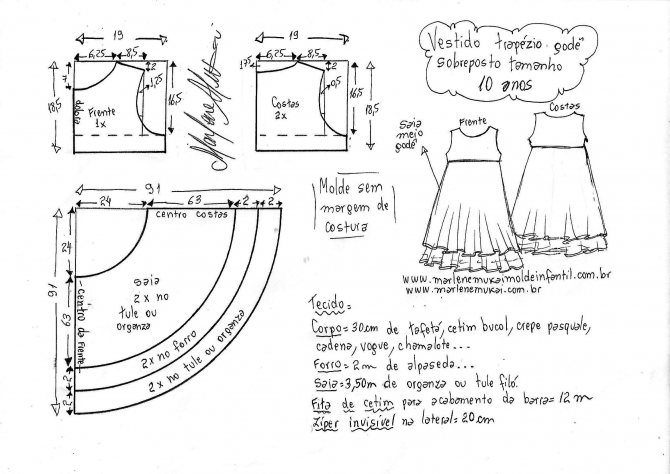 19
6,25 8,5
2
4
1,25
18,5
16,5
dobra
Frente
1x
19
6,25 8,5
1,75
2
0,5
18,5
16,5
Costas
2x
Vestido trapézio godê"
sobreposto tamanho
10 anos
Frente
Costas
Saia
meio
godê
91
24 63 2 2
centro costas
24
91
63
2
2
centro da frente
saia
2x no
tule ou
organza
2x no forro
2x no tule ou organza
Molde sem
margem de
costura
www.marlenemukaimoldeinfantil.com.br
www.marlenemukai.com.br
Tecido=
Corpo=30cm de tafetá, cetim bucol, crepe pasquale,
cadena, vogue, chamalote...
Forro=2m de alpaseda...
Saia=3,50m de organza ou tule filó.
Fita de cetim para acabamento da barra=12m
Zíper invisível na lateral=20cm